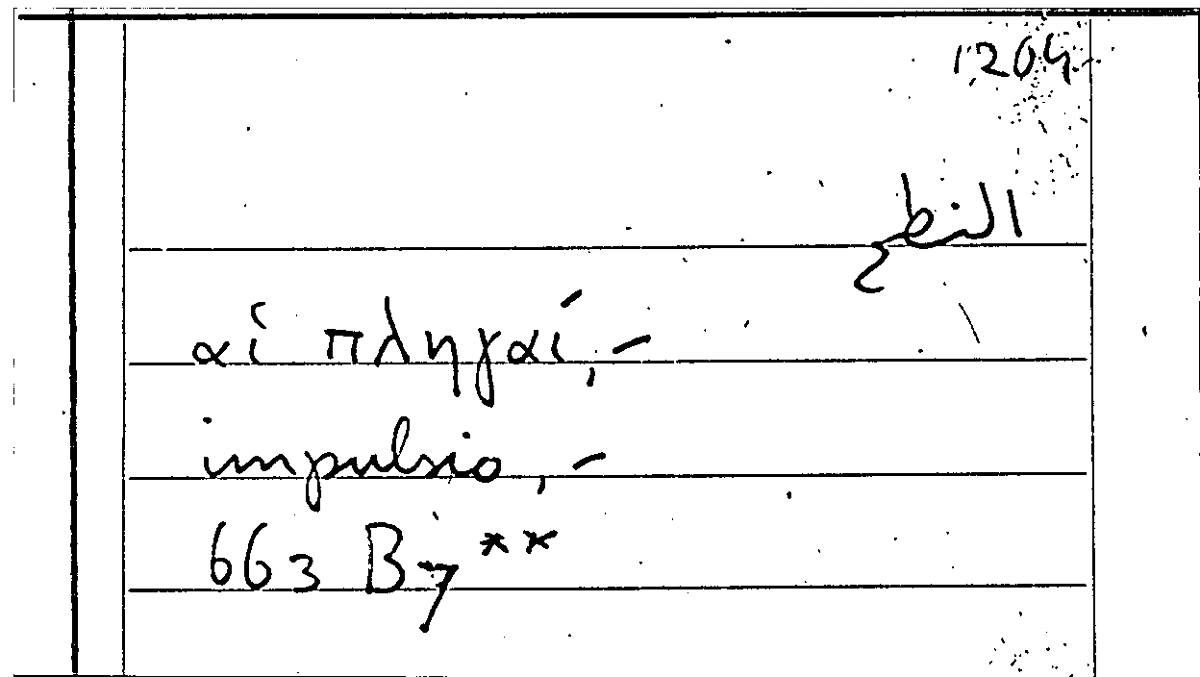 1204
النطح
αἱ πληγαί,-
impulsio,-
663 B7**